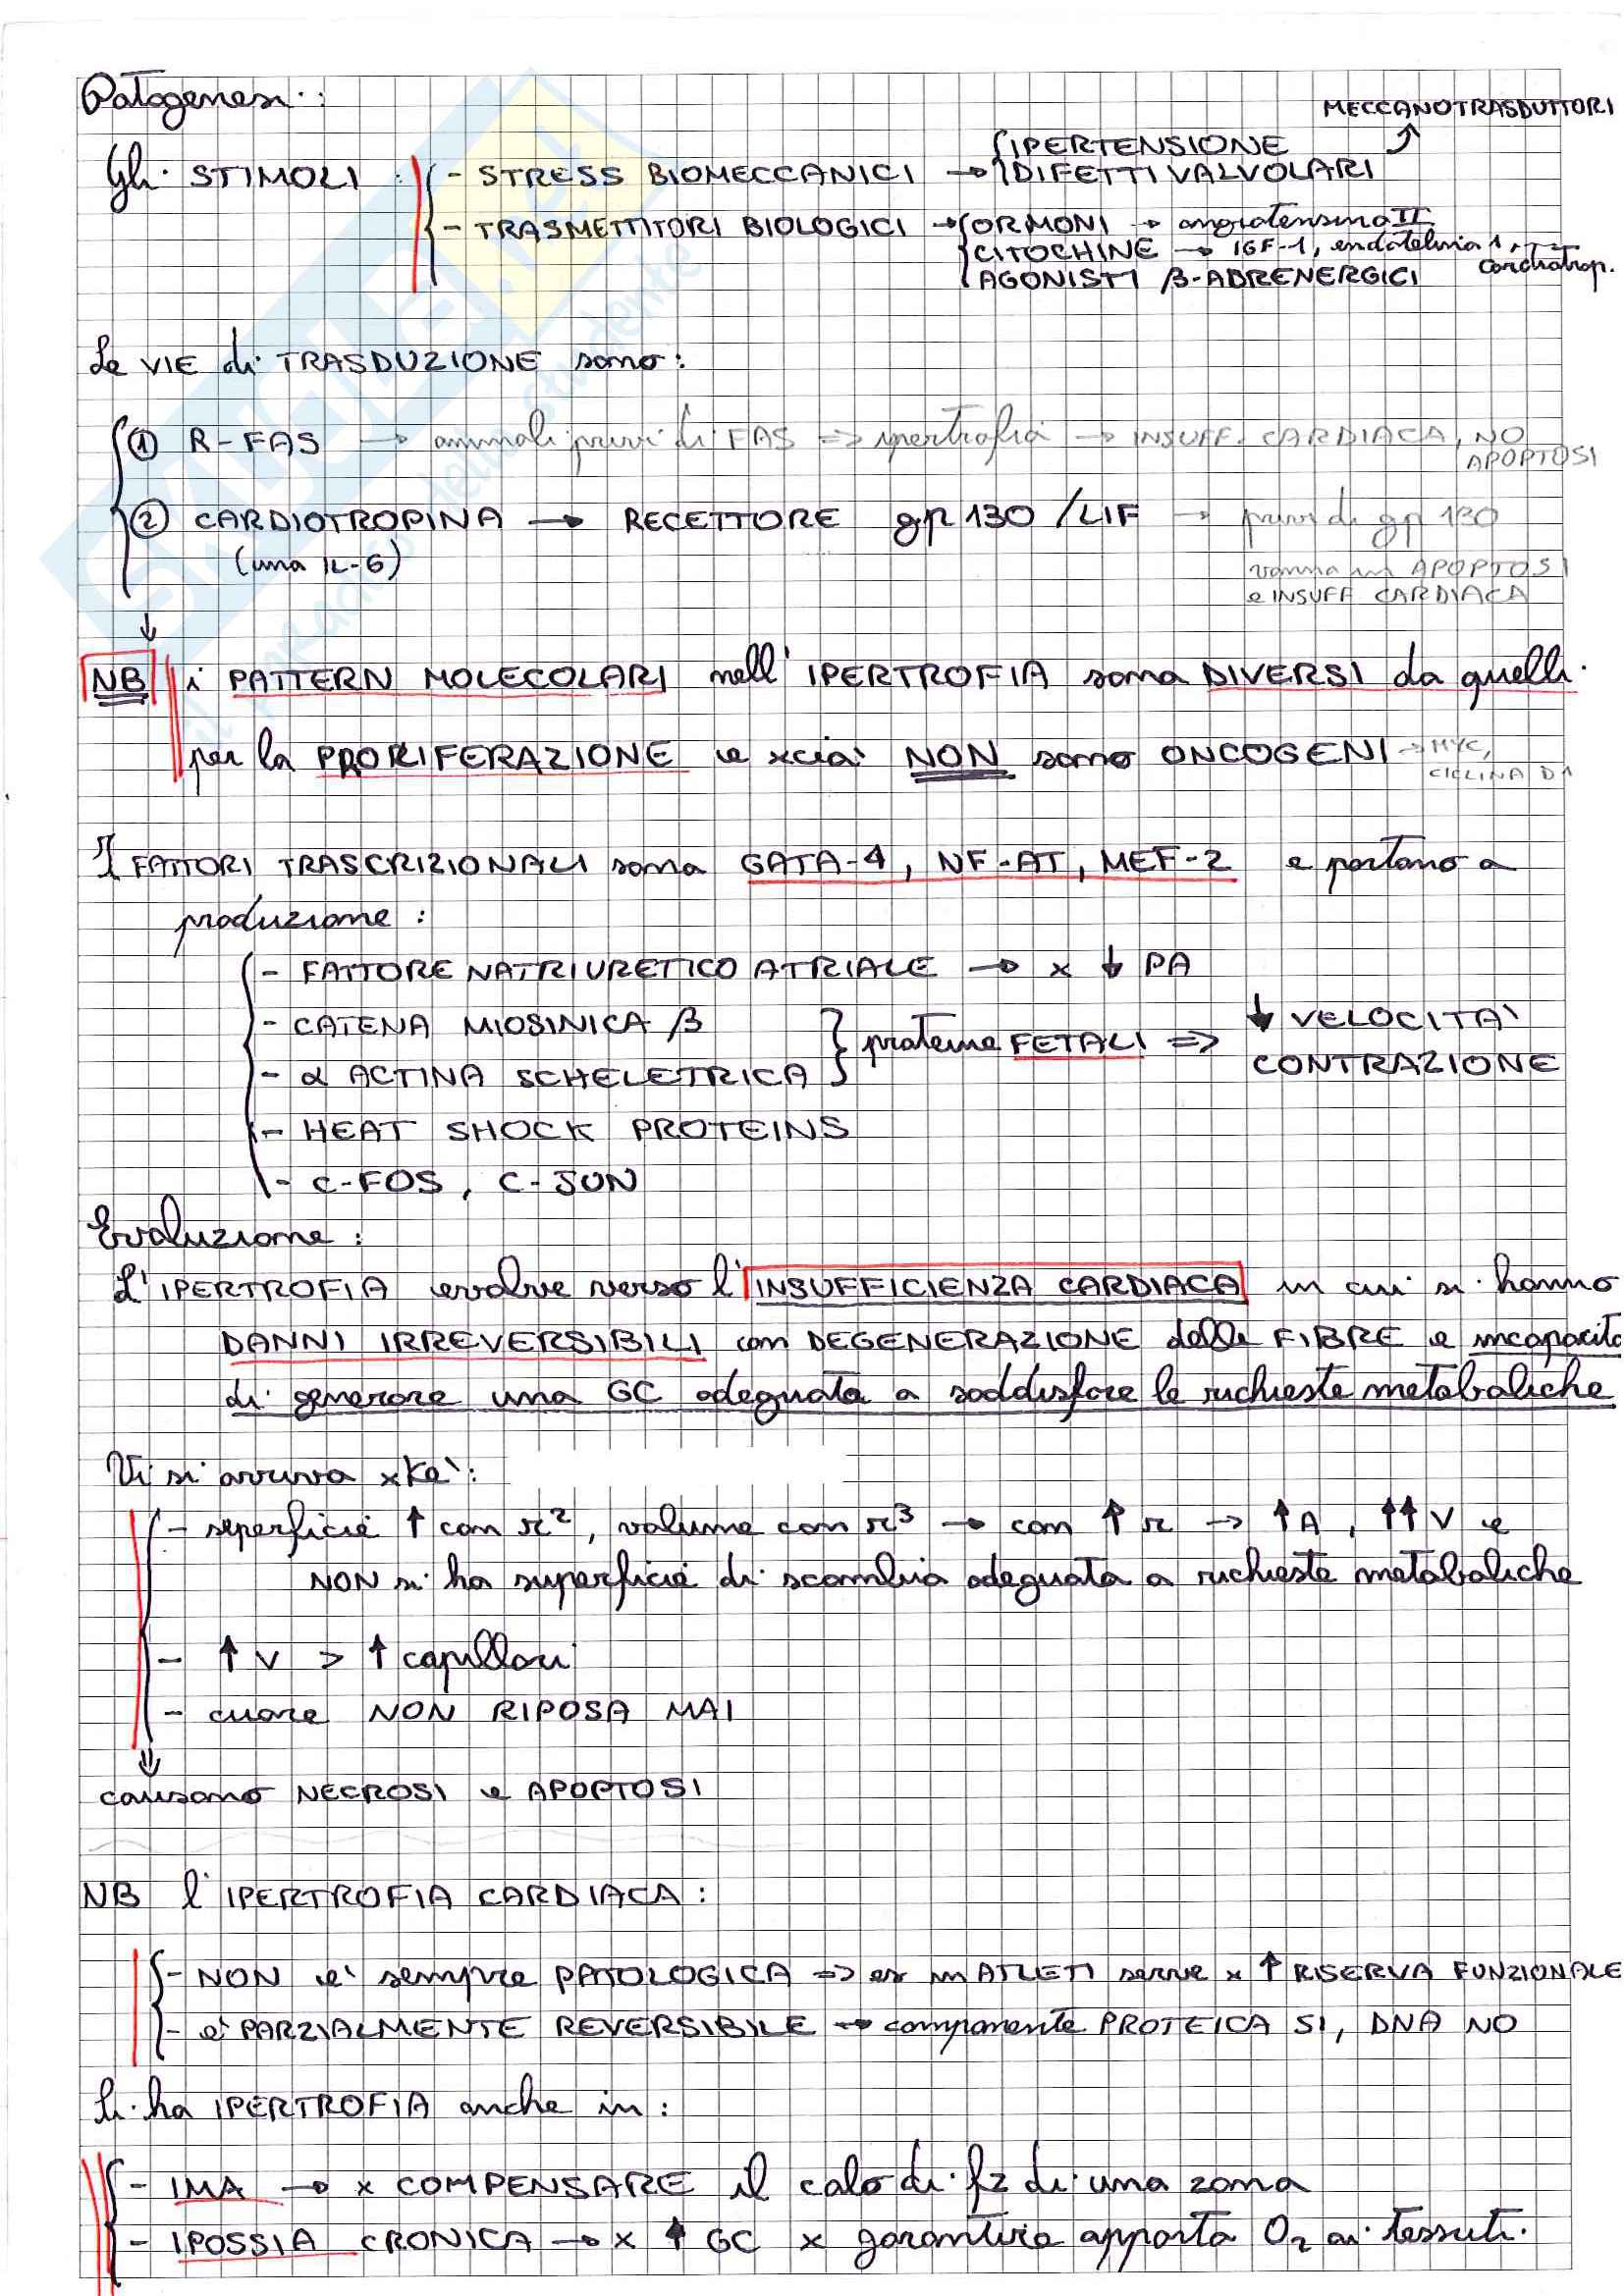 Patogenesi:
MECCANOTRASDUTTORI
Gli STIMOLI : - STRESS BIOMECCANICI → IPERTENSIONE
DIFETTI VALVOLARI
- TRASMETTITORI BIOLOGICI → ORMONI → angiotensina II
CITOCHINE → IGF-1, endotelina 1,
cardiotrop.
AGONISTI β-ADRENERGICI
Le VIE di TRASDUZIONE sono:
① R-FAS → animali privi di FAS => ipertrofia → INSUFF. CARDIACA, NO
APOPTOSI
② CARDIOTROPINA → RECETTORE gp 130 /LIF → privi di gp 130
(una IL-6) vanno in APOPTOSI
e INSUFF. CARDIACA
↓
NB i PATTERN MOLECOLARI nell' IPERTROFIA sono DIVERSI da quelli
per la PRORIFERAZIONE e xciò NON sono ONCOGENI → MYC,
CICLINA D1
I FATTORI TRASCRIZIONALI sono GATA-4, NF-AT, MEF-2 e portano a
produzione :
- FATTORE NATRIURETICO ATRIALE → x ↓ PA
- CATENA MIOSINICA β
- α ACTINA SCHELETRICA } proteine FETALI => ↓ VELOCITA'
CONTRAZIONE
- HEAT SHOCK PROTEINS
- C-FOS, C-JUN
Evoluzione :
L'IPERTROFIA evolve verso l'INSUFFICIENZA CARDIACA in cui si hanno
DANNI IRREVERSIBILI con DEGENERAZIONE delle FIBRE e incapacità
di generare una GC adeguata a soddisfare le richieste metaboliche
Vi si arriva xkè:
- superficie ↑ con r², volume con r³ → con ↑ r → ↑A, ↑↑V e
NON si ha superficie di scambio adeguata a richieste metaboliche
- ↑ V > ↑ capillari
- cuore NON RIPOSA MAI
⇓
causano NECROSI e APOPTOSI
NB l'IPERTROFIA CARDIACA :
- NON è sempre PATOLOGICA => es in ATLETI serve x ↑ RISERVA FUNZIONALE
- è PARZIALMENTE REVERSIBILE → componente PROTEICA SI, DNA NO
Si ha IPERTROFIA anche in :
- IMA → x COMPENSARE il calo di fz di una zona
- IPOSSIA CRONICA → x ↑ GC x garantire apporto O₂ ai tessuti.
SKUOLA.net
il paradiso dello studente